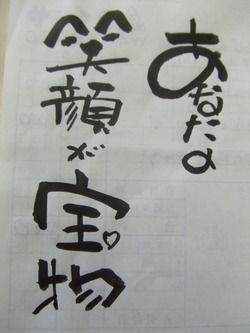 あなたの
笑顔が宝物